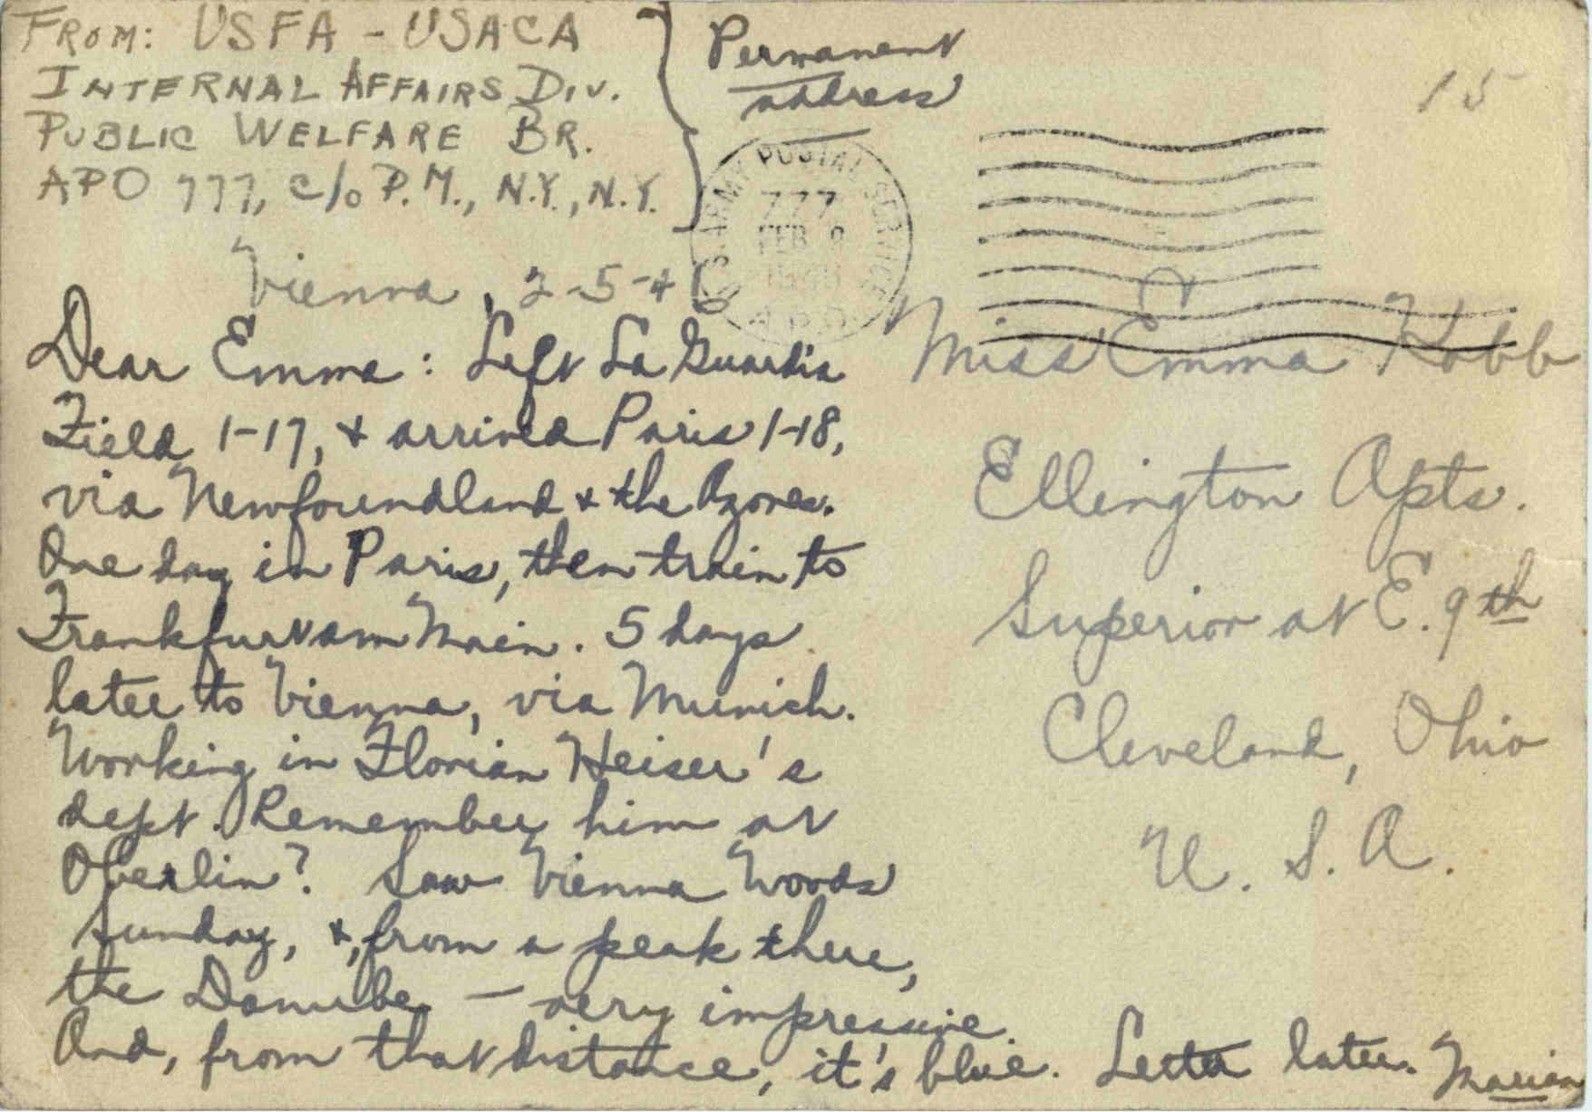 FROM: USFA - USACA
INTERNAL AFFAIRS DIV.
PUBLIC WELFARE BR.
APO 777, c/o P.M., N.Y., N.Y.
Permanent
address
15
U.S. ARMY POSTAL SERVICE
777
FEB
A.P.O.
Vienna, 2-5-46
Dear Emma: Left La Guardia
Field 1-17, & arrived Paris 1-18,
via Newfoundland & the Azores.
One day in Paris, then train to
Frankfurt am Main. 5 days
later to Vienna, via Munich.
Working in Florian Heiser's
dept. Remember him at
Oberlin? Saw Vienna Woods
Sunday, &, from a peak there,
the Danube – very impressive.
And, from that distance, it's blue. Letter later. Marian
Miss Emma
Ellington Apts.
Superior at E. 9th
Cleveland, Ohio
U. S. A.